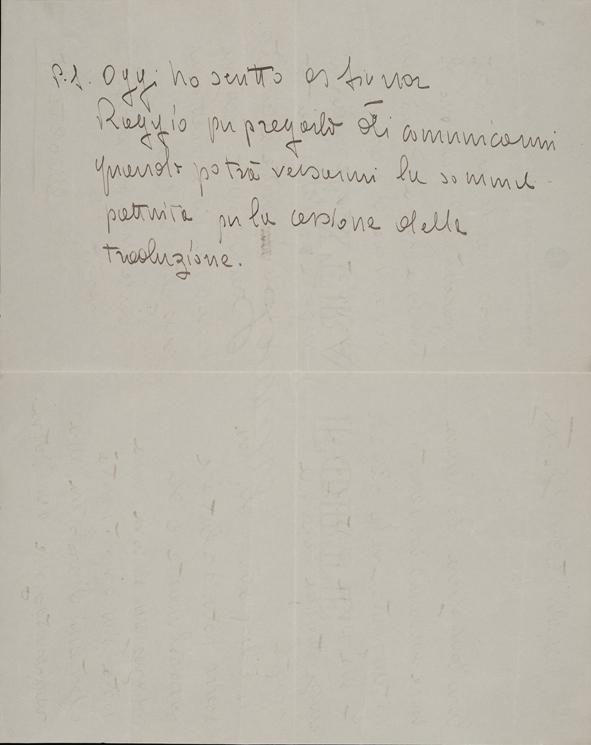 P.S. Oggi ho scritto al Signor
Raggio per pregarlo di comunicarmi
quando potrà versarmi la somma
pattuita per la cessione della
traduzione.